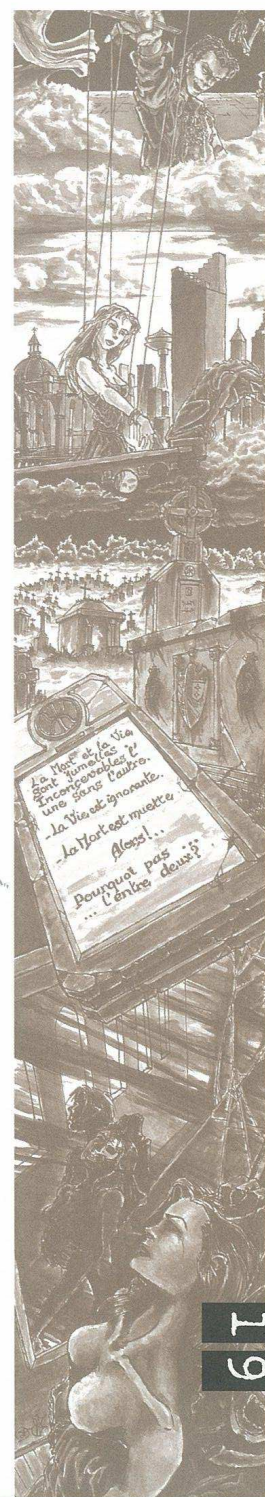 La Mort et la Vie
sont jumelles
Inconcevables l'
une sans l'autre.
- La Vie est ignorante.
- La Mort est muette
Alors!...
Pourquoi pas
... l'entre deux?
19